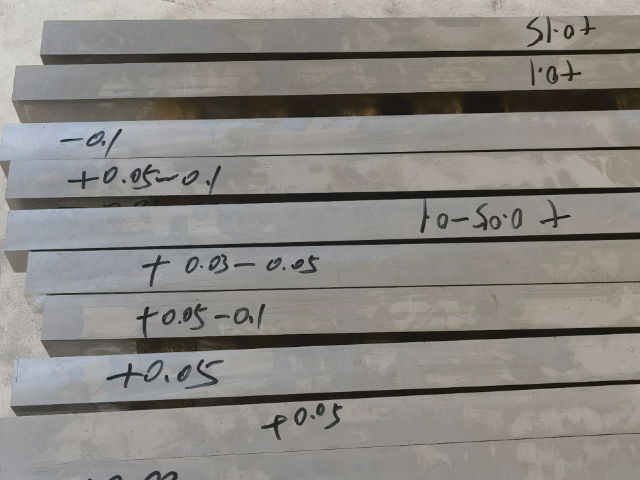 +0.15
+0.1
-0.1
+0.05~0.1
+0.05-0.1
+0.03-0.05
+0.05-0.1
+0.05
+0.05